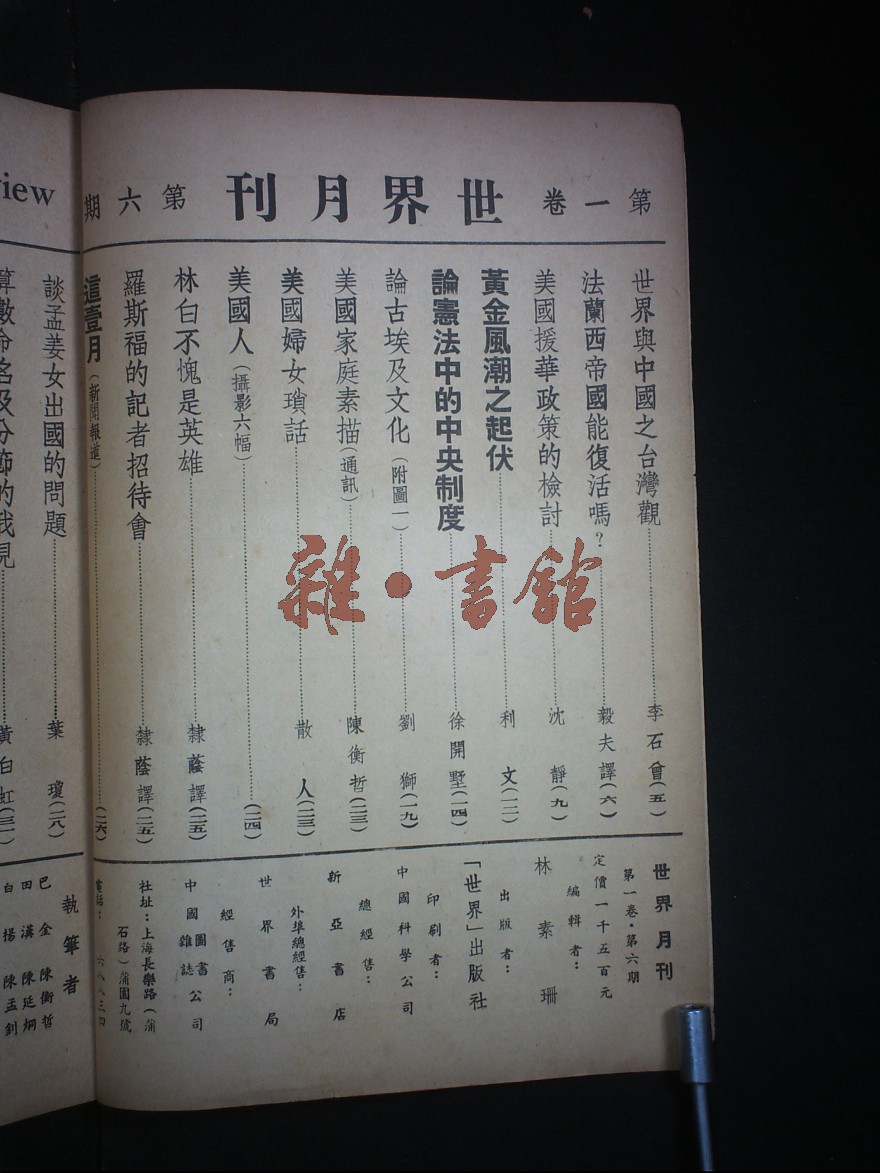 第一卷 世界月刊 第六期
世界與中國之台灣觀 李石曾(五)
法蘭西帝國能復活嗎? 毅夫譯(六)
美國援華政策的檢討 沈靜(九)
黃金風潮之起伏 利文(一二)
論憲法中的中央制度 徐開墅(一四)
論古埃及文化(附圖一) 劉獅(一九)
美國家庭素描(通訊) 陳衡哲(二三)
美國婦女瑣話 散人(二三)
美國人(攝影六幅) (二四)
林白不愧是英雄 隸蔭譯(二五)
羅斯福的記者招待會 隸蔭譯(二五)
這壹月(新聞報道) (二六)
談孟姜女出國的問題 葉瓊(二八)
算數命名及分節的我見 黃白虹(三一)
世界月刊
第一卷·第六期
定價一千五百元
編輯者:
林素珊
出版者:
「世界」出版社
印刷者:
中國科學公司
總經售:
新亞書店
外埠總經售:
世界書局
經售商:
中國圖書雜誌公司
社址:上海長樂路(蒲石路)蒲園九號
電話:六八八三四
執筆者
巴金 陳衡哲
田漢 陳延炯
白楊 陳孟釗
view
雜·書館